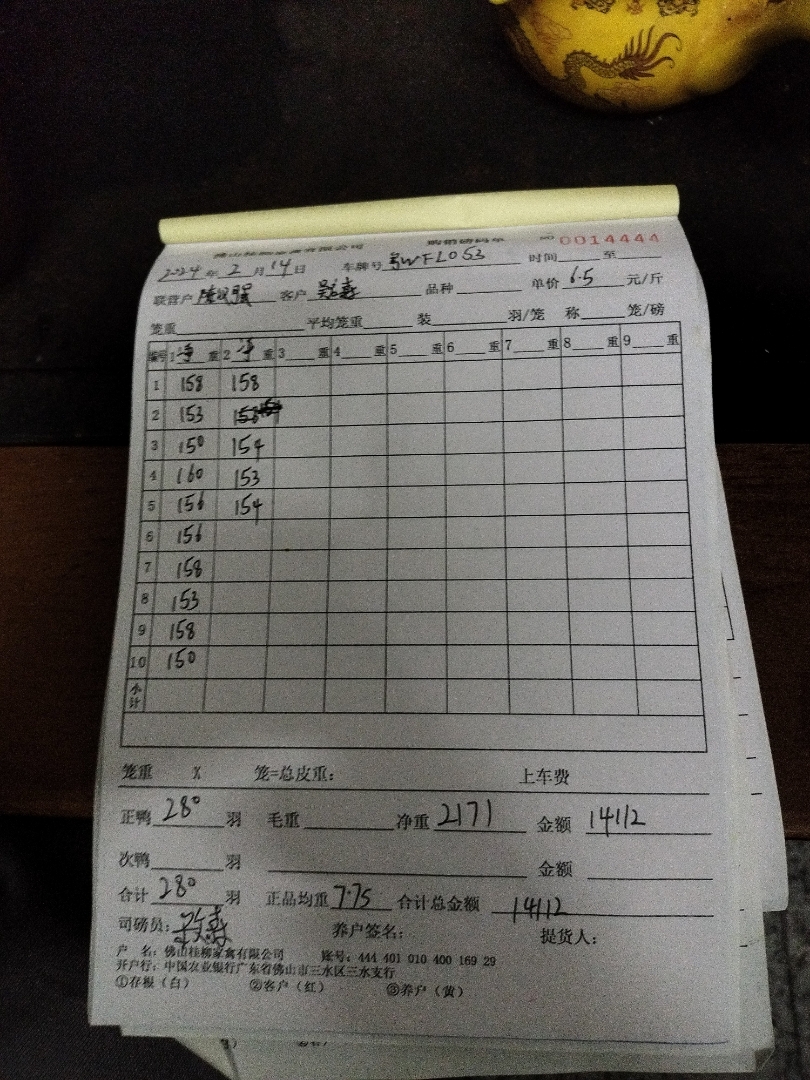 佛山桂柳家禽有限公司 购销磅码单 NO 0014444
2024年2月14日 车牌号 粤WFL053 时间 至
联营户 客户 品种 单价 6.5 元/斤
笼重 平均笼重 装 羽/笼 称 笼/磅
编号 1 净 重 2 净 重 3 重 4 重 5 重 6 重 7 重 8 重 9 重
1 158 158
2 153
3 150 154
4 160 153
5 156 154
6 156
7 158
8 153
9 158
10 150
小计
笼重 X 笼=总皮重: 上车费
正鸭 280 羽 毛重 净重 2171 金额 14112
次鸭 羽 金额
合计 280 羽 正品均重 7.75 合计总金额 14112
司磅员: 养户签名: 提货人:
户 名: 佛山桂柳家禽有限公司 账号: 444 401 010 400 169 29
开户行: 中国农业银行广东省佛山市三水区三水支行
①存根(白) ②客户(红) ③养户(黄)